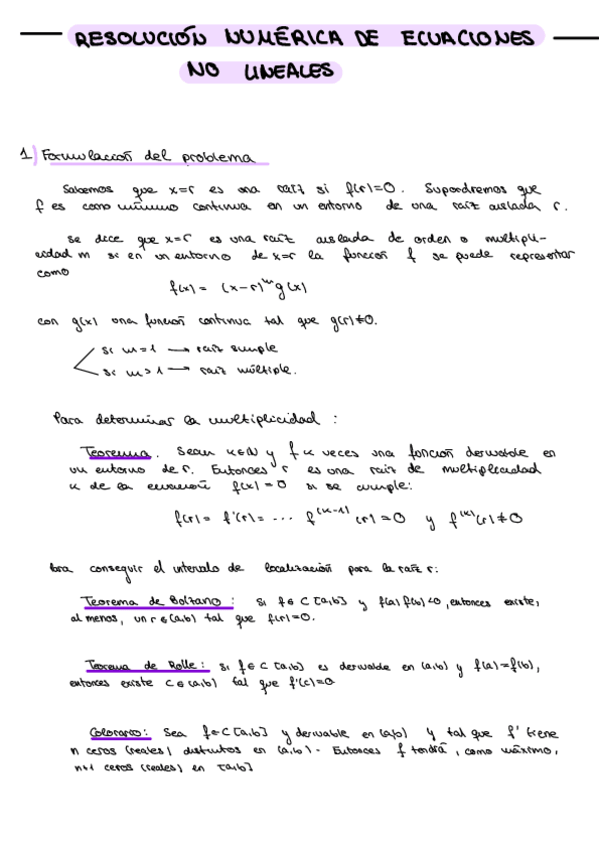 RESOLUCIÓN NUMÉRICA DE ECUACIONES
NO LINEALES
1) Formulación del problema
Sabemos que x=r es una raíz si f(r)=0. Supondremos que
f es como mínimo continua en un entorno de una raíz aislada r.
Se dice que x=r es una raíz aislada de orden o multipli-
cidad m si en un entorno de x=r la función f se puede representar
como
f(x) = (x-r)^m g(x)
con g(x) una función continua tal que g(r)≠0.
si m=1 → raíz simple
si m>1 → raíz múltiple.
Para determinar la multiplicidad :
Teorema. Sean k∈N y f k veces una función derivable en
un entorno de r. Entonces r es una raíz de multiplicidad
k de la ecuación f(x)=0 si se cumple:
f(r) = f'(r) = ... f^(k-1)(r) = 0 y f^(k)(r) ≠ 0
Para conseguir el intervalo de localización para la raíz r:
Teorema de Bolzano : Si f∈C[a,b] y f(a)f(b)<0, entonces existe,
al menos, un r∈(a,b) tal que f(r)=0.
Teorema de Rolle : Si f∈C[a,b] es derivable en (a,b) y f(a)=f(b),
entonces existe c∈(a,b) tal que f'(c)=0
Colorario: Sea f∈C[a,b] y derivable en (a,b) y tal que f' tiene
n ceros (reales) distintos en (a,b). Entonces f tendrá, como máximo,
n+1 ceros (reales) en [a,b]